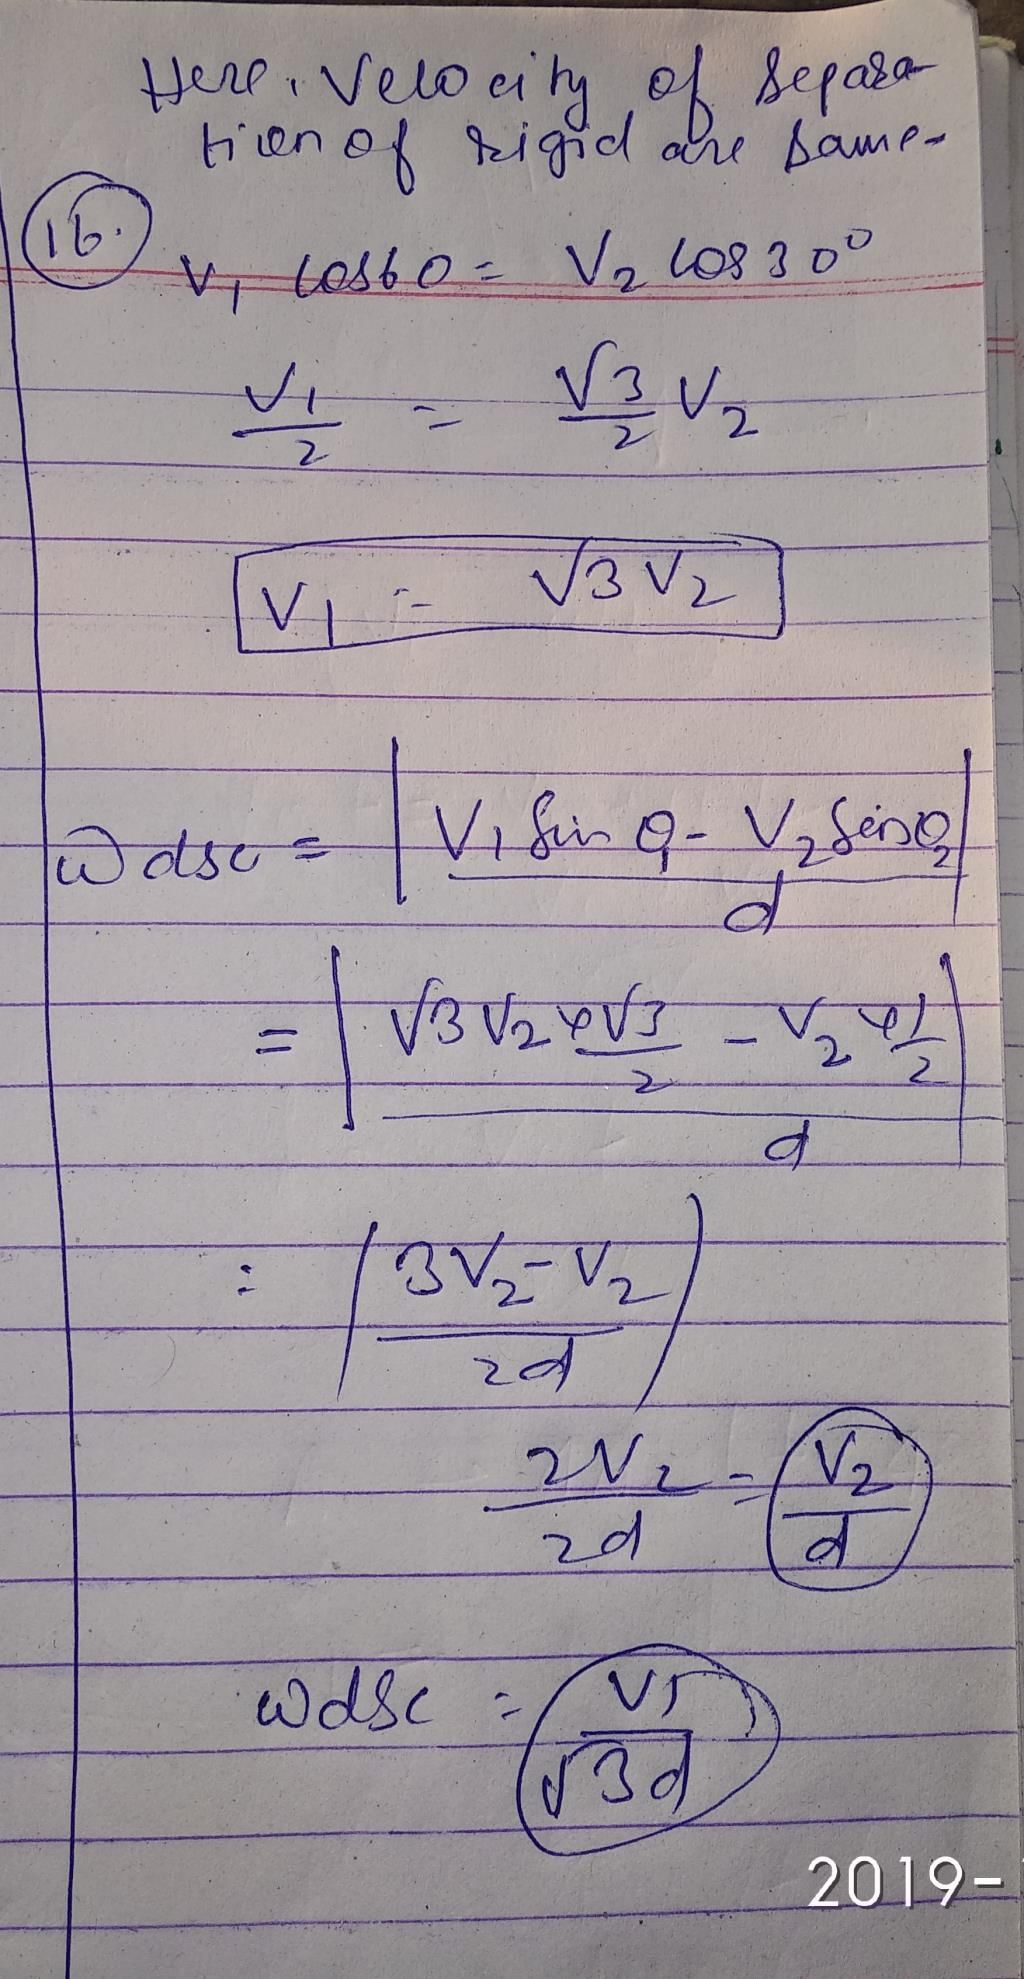 Here, Velocity of Separa-
tion of rigid are same-
16.
V₁ cos60 = V₂ cos30°
V₁/2 = √3/2 V₂
V₁ = √3 V₂
ω disc = |(V₁ Sin θ₁ - V₂ Sin θ₂)/d|
= |(√3 V₂ × √3/2 - V₂ × 1/2)/d|
= |(3V₂ - V₂)/2d|
2V₂/2d = V₂/d
ω disc = V₁/√3d
2019-